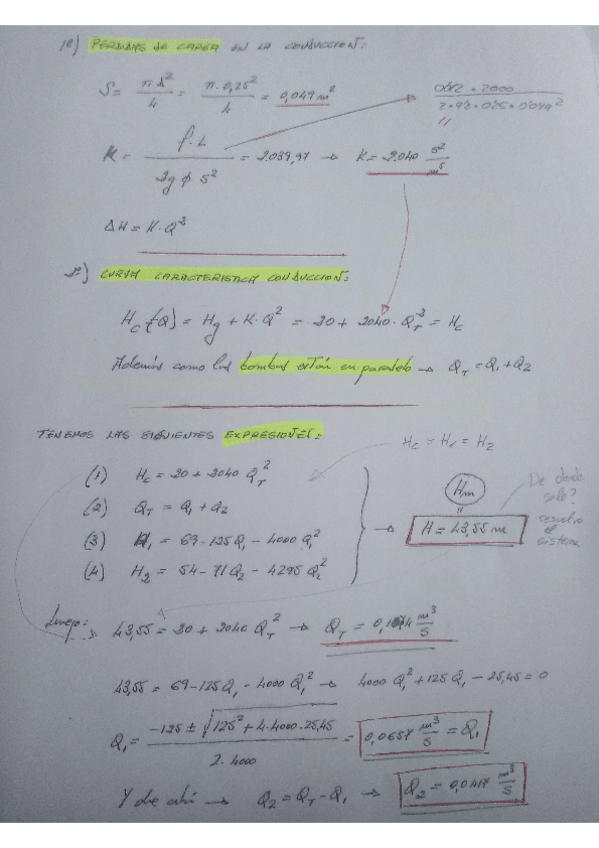 1º) PERDIDAS DE CARGA EN LA CONDUCCION:
S = π·d² / 4 = π·0,25² / 4 = 0,049 m²
0'012 · 2000 / 2·9'8·0'25·0'049²
K = f·L / 2g φ S² = 2.039,97 → K = 2.040 s²/m⁵
ΔH = K·Q²
2º) CURVA CARACTERISTICA CONDUCCION:
Hc(Q) = Hg + K·Q² = 20 + 2040·Q_T² = Hc
Además como las bombas están en paralelo → Q_T = Q1 + Q2
TENEMOS LAS SIGUIENTES EXPRESIONES:
Hc = H1 = H2
(1) Hc = 20 + 2040 Q_T²
(2) Q_T = Q1 + Q2
(3) H1 = 69 - 125Q1 - 4000 Q1²
(4) H2 = 54 - 71Q2 - 4295 Q2²
Hm
"
→ H = 43,55 m
De donde
sale?
resuelvo
el
sistema
Luego:
43,55 = 20 + 2040 Q_T² → Q_T = 0,1074 m³/s
43,55 = 69 - 125Q1 - 4000 Q1² → 4000 Q1² + 125 Q1 - 25,45 = 0
Q1 = -125 ± √(125² + 4·4000·25,45) / 2·4000 = 0,0657 m³/s = Q1
Y de ahí → Q2 = Q_T - Q1 → Q2 = 0,0417 m³/s